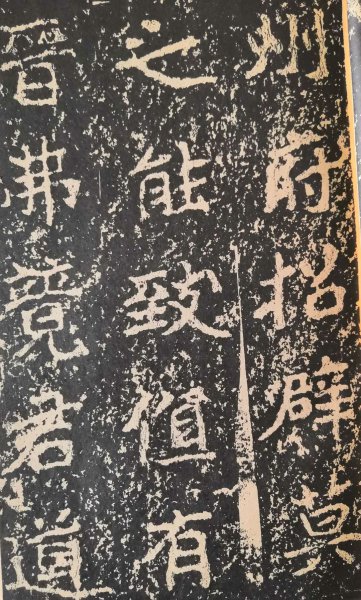 州府招辟莫
之能致值有
晉弗竟君道